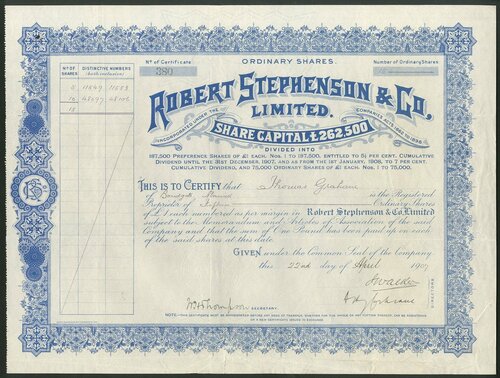 ORDINARY SHARES.
Nº of Certificate
380
Number of Ordinary Shares
Nº OF SHARES
DISTINCTIVE NUMBERS
(both inclusive)
15
ROBERT STEPHENSON & CO.
LIMITED.
INCORPORATED UNDER THE COMPANIES ACTS 1862 TO 1898
SHARE CAPITAL £262,500
DIVIDED INTO
187,500 PREFERENCE SHARES OF £1 EACH. Nos. 1 TO 187,500, ENTITLED TO 5½ PER CENT. CUMULATIVE
DIVIDEND UNTIL THE 31ST DECEMBER, 1907, AND AS FROM THE 1ST JANUARY, 1908, TO 7 PER CENT.
CUMULATIVE DIVIDEND, AND 75,000 ORDINARY SHARES OF £1 EACH. Nos. 1 TO 75,000.
THIS IS TO CERTIFY that Thomas Graham
is the Registered
Proprietor of Fifteen Ordinary Shares
of £1 each numbered as per margin in Robert Stephenson & Co. Limited
subject to the Memorandum and Articles of Association of the said
Company and that the sum of One Pound has been paid up on each
of the said shares at this date.
GIVEN under the Common Seal of the Company
this 22nd day of April 1907
Wm H Thompson SECRETARY
DIRECTORS
NOTE.—THIS CERTIFICATE MUST BE SURRENDERED BEFORE ANY DEED OF TRANSFER, WHETHER FOR THE WHOLE OR ANY PORTION THEREOF, CAN BE REGISTERED
OR A NEW CERTIFICATE ISSUED IN EXCHANGE.